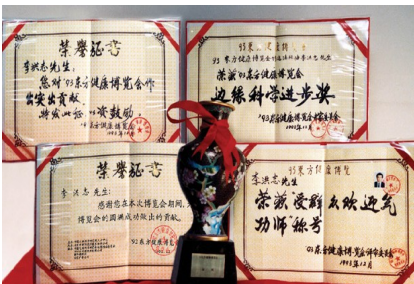 荣誉证书
李洪志先生:
您对'93东方健康博览会作
出突出贡献,
特发此证,以资鼓励
'93东方健康博览会
93东方健康博览
荣获'93东方健康博览会
边缘科学进步奖
'93东方健康博览会
1993年12月
荣誉证书
李洪志先生:
感谢您在本次博览会期间,为
博览会的圆满成功做出的贡献。
'92东方健康博览会
93东方健康博览
李洪志先生
荣获"受群众欢迎气
功师"称号
'93东方健康博览会评审委员会
1993年12月